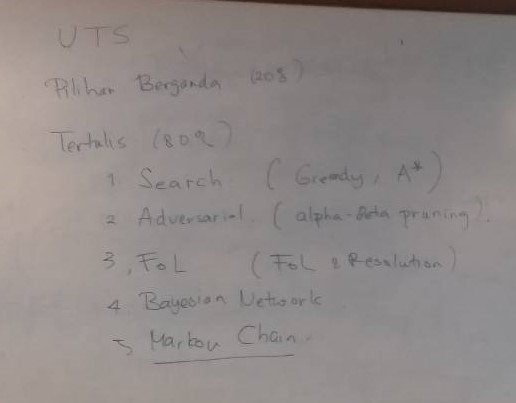 UTS
Pilihan Berganda (20%)
Tertulis (80%)
1 Search ( Greedy, A* )
2 Adversarial ( alpha-Beta pruning ).
3, FoL ( FoL & Resolution )
4 Bayesian Network
5 Markov Chain.